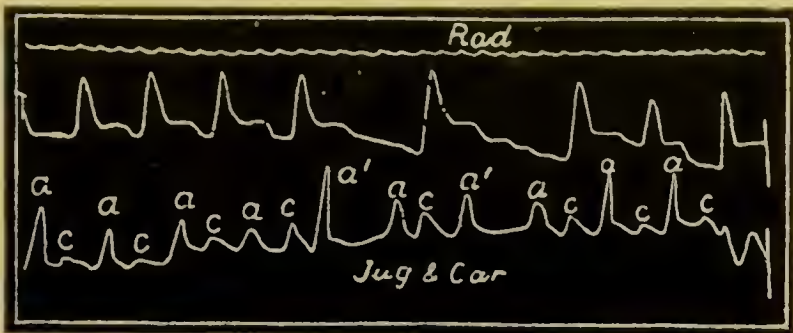 Rad
a c a c a c a c a' a c a' a c a c a c
Jug & Car